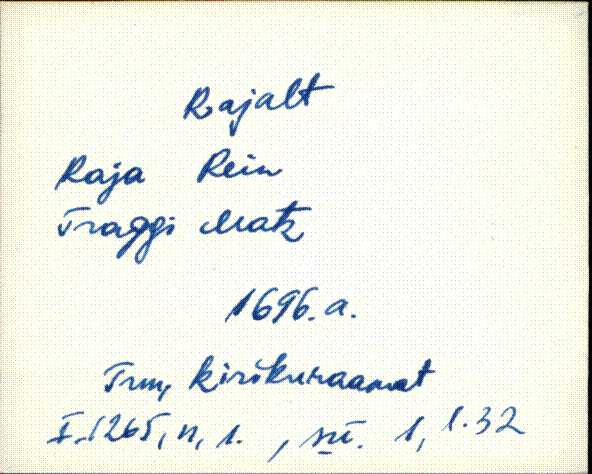 Rajalt
Raja Rein
Traggi Matz
1696. a.
Trm, kirikuraamat
F. 1265, n, 1. , sü. 1, l. 32